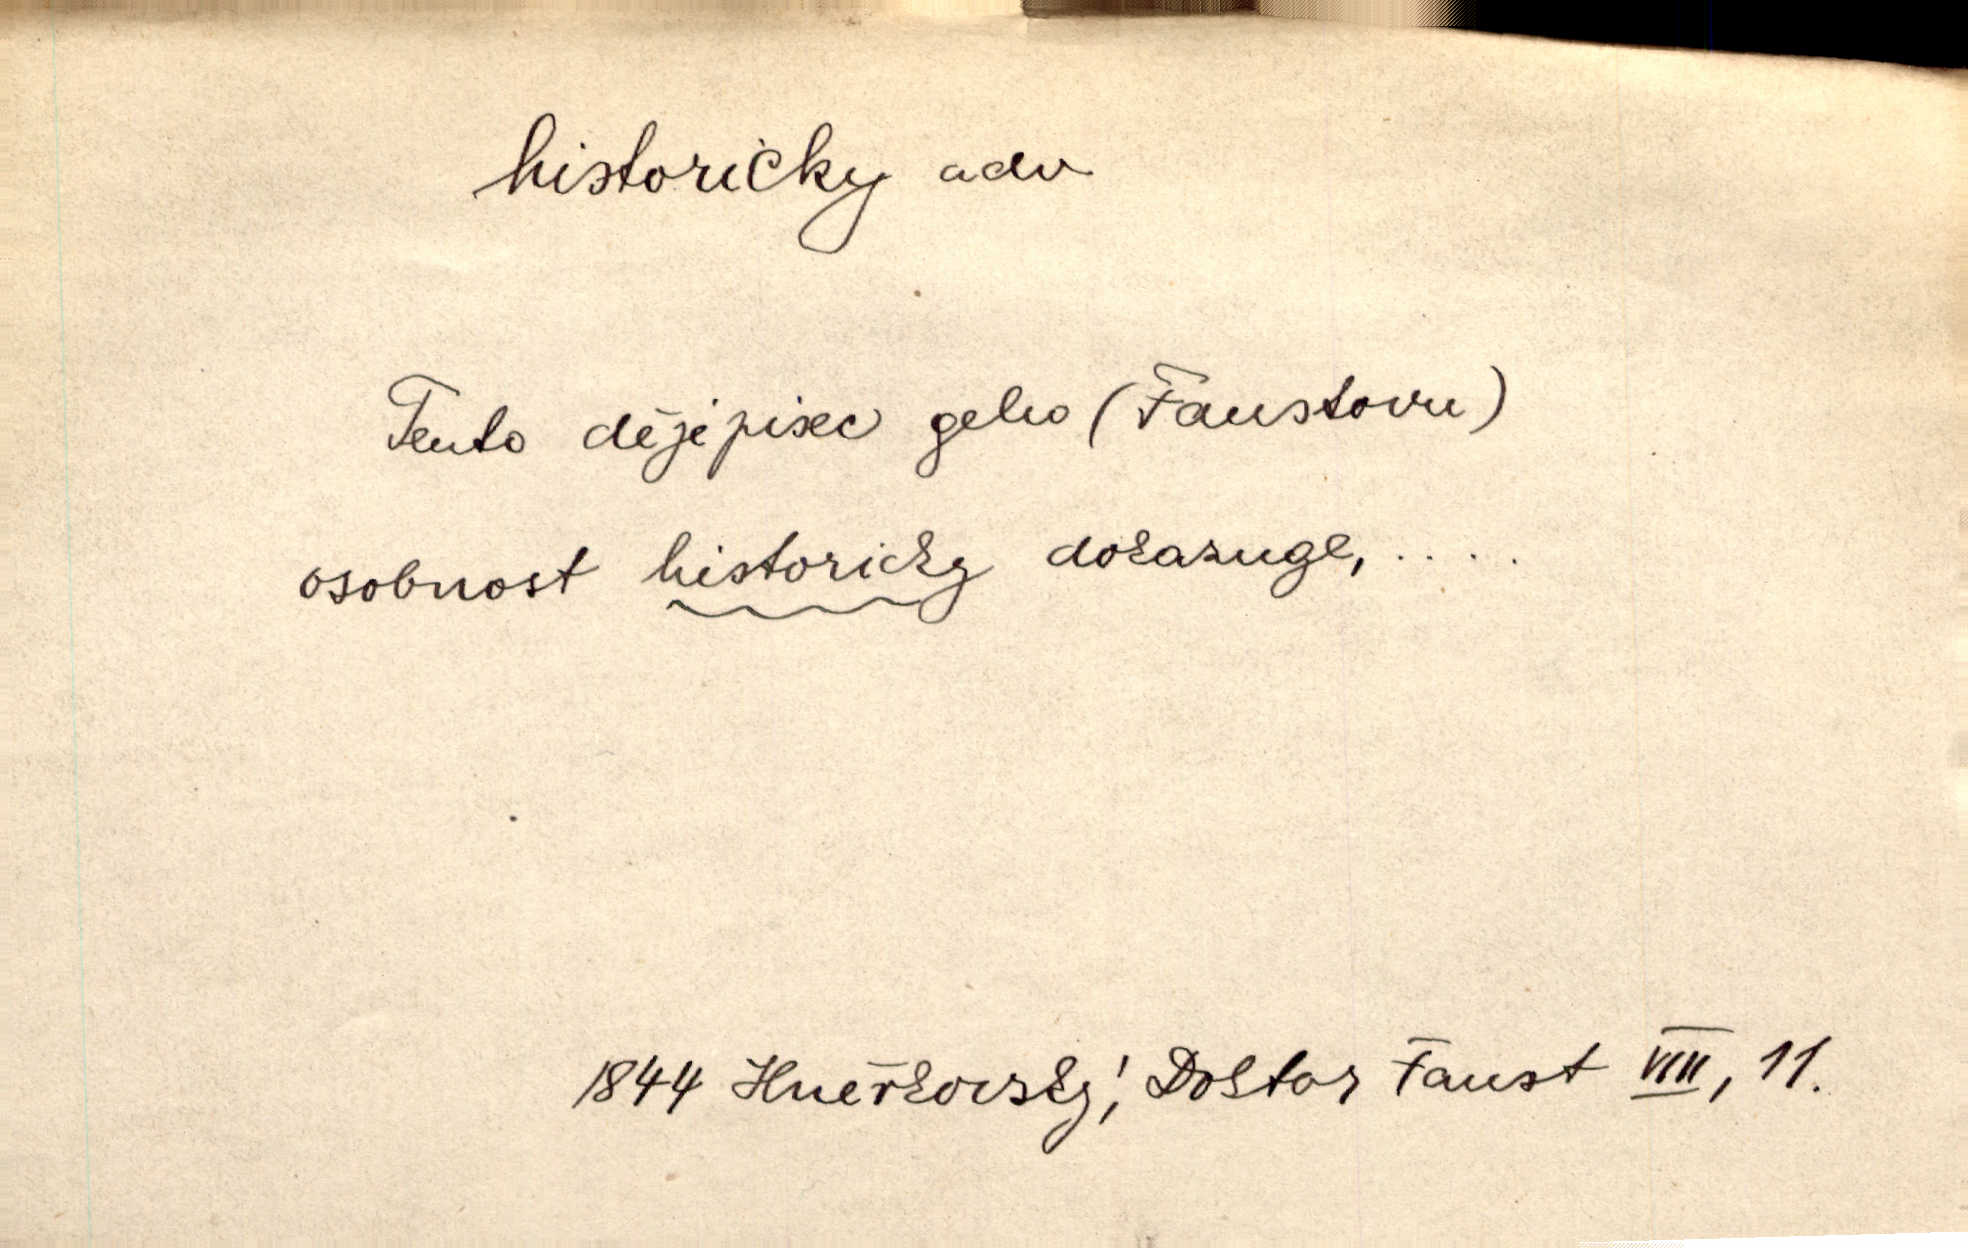 historicky adv.
Tento dějepisec geho (Faustovu)
osobnost historicky dokazuge, ....
1844 Hněvkovský, Doktor Faust VIII, 11.